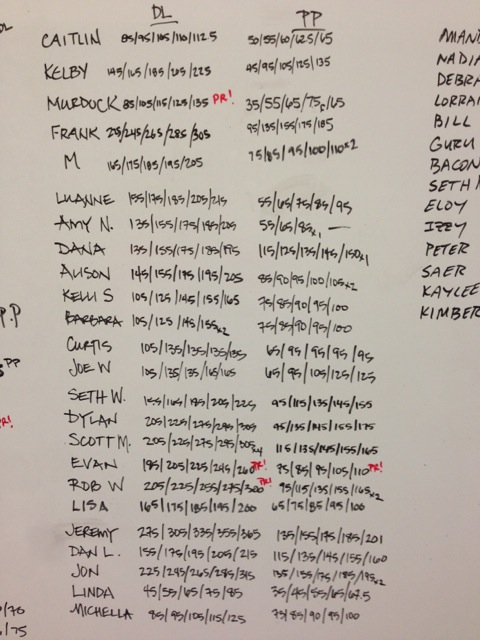 DL PP
CAITLIN 85/95/105/110/112.5 50/55/60/62.5/65
KELBY 145/165/185/205/225 85/95/105/125/135
MURDOCK 85/105/115/125/135 PR! 35/55/65/75/65
FRANK 205/245/265/285/305 95/135/155/175/185
M 165/175/185/195/205 75/85/95/100/110x2
LUANNE 155/175/185/205/215 55/65/75/85/95
AMY N. 135/155/175/185/205 55/65/85x1 —
DANA 135/155/175/185/195 115/125/135/145/150x1
ALISON 145/155/175/195/205 85/90/95/100/105x2
KELLI S 105/125/145/155/165 75/85/90/95/100
BARBARA 105/125/145/155x2 75/85/90/95/100
CURTIS 105/135/135/135/135 65/95/95/95/95
JOE W 105/135/135/165/165 65/95/105/125/125
SETH W. 155/165/185/205/225 95/115/135/145/155
DYLAN 205/225/275/295/305 95/135/145/155/175
SCOTT M. 205/225/275/295/305x4 115/135/145/155/165
EVAN 185/205/225/245/260 PR! 75/85/95/105/110 PR!
ROB W 205/225/255/275/300 PR! 95/115/135/155/165x2
LISA 165/175/185/195/200 65/75/85/95/100
JEREMY 275/305/335/355/365 135/155/175/185/201
DAN L. 155/175/195/205/215 115/135/145/155/160
JON 225/245/265/285/315 135/155/175/185/195x2
LINDA 45/55/65/75/85 35/45/55/65/67.5
MICHELLA 85/95/105/115/125 75/85/90/95/100
NADIA
DEBRA
BILL
GURU
BACON
SETH
ELOY
IZZY
PETER
SAER
KAYLEE
KIMBER
P.P
PP
PR!